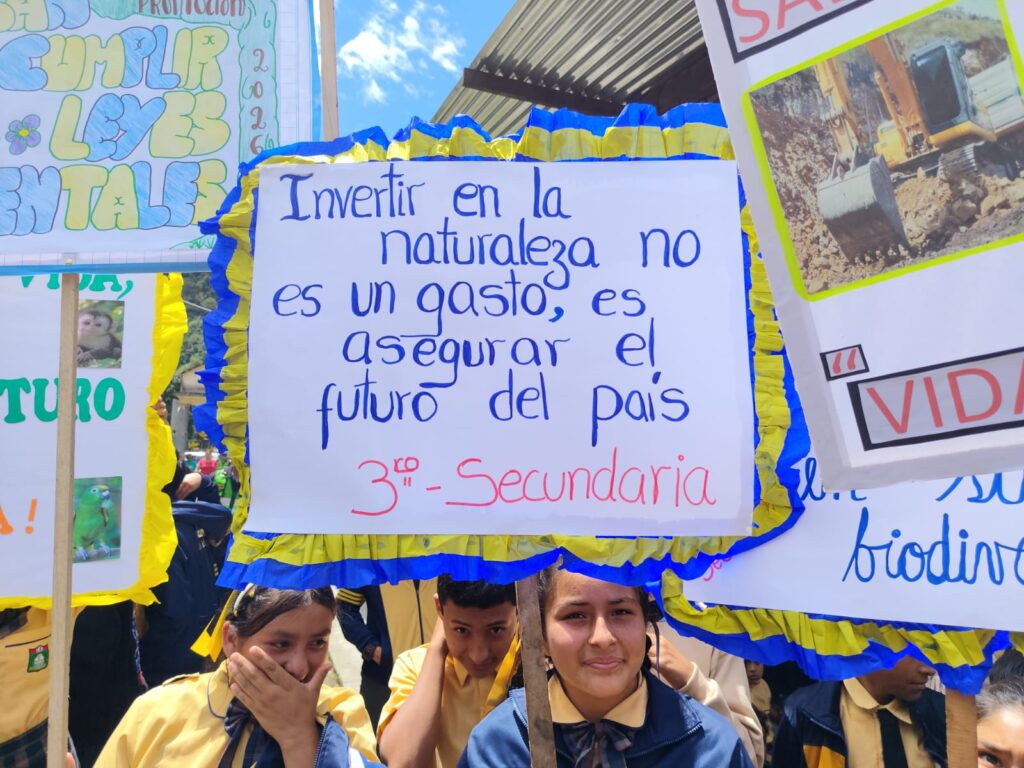 PROMOCIÓN
2026
CUMPLIR
LEYES
TALES
VIDA,
TURO
!
Invertir en la
naturaleza no
es un gasto, es
asegurar el
futuro del país
3ro - Secundaria
SA
"
VIDA
biodive